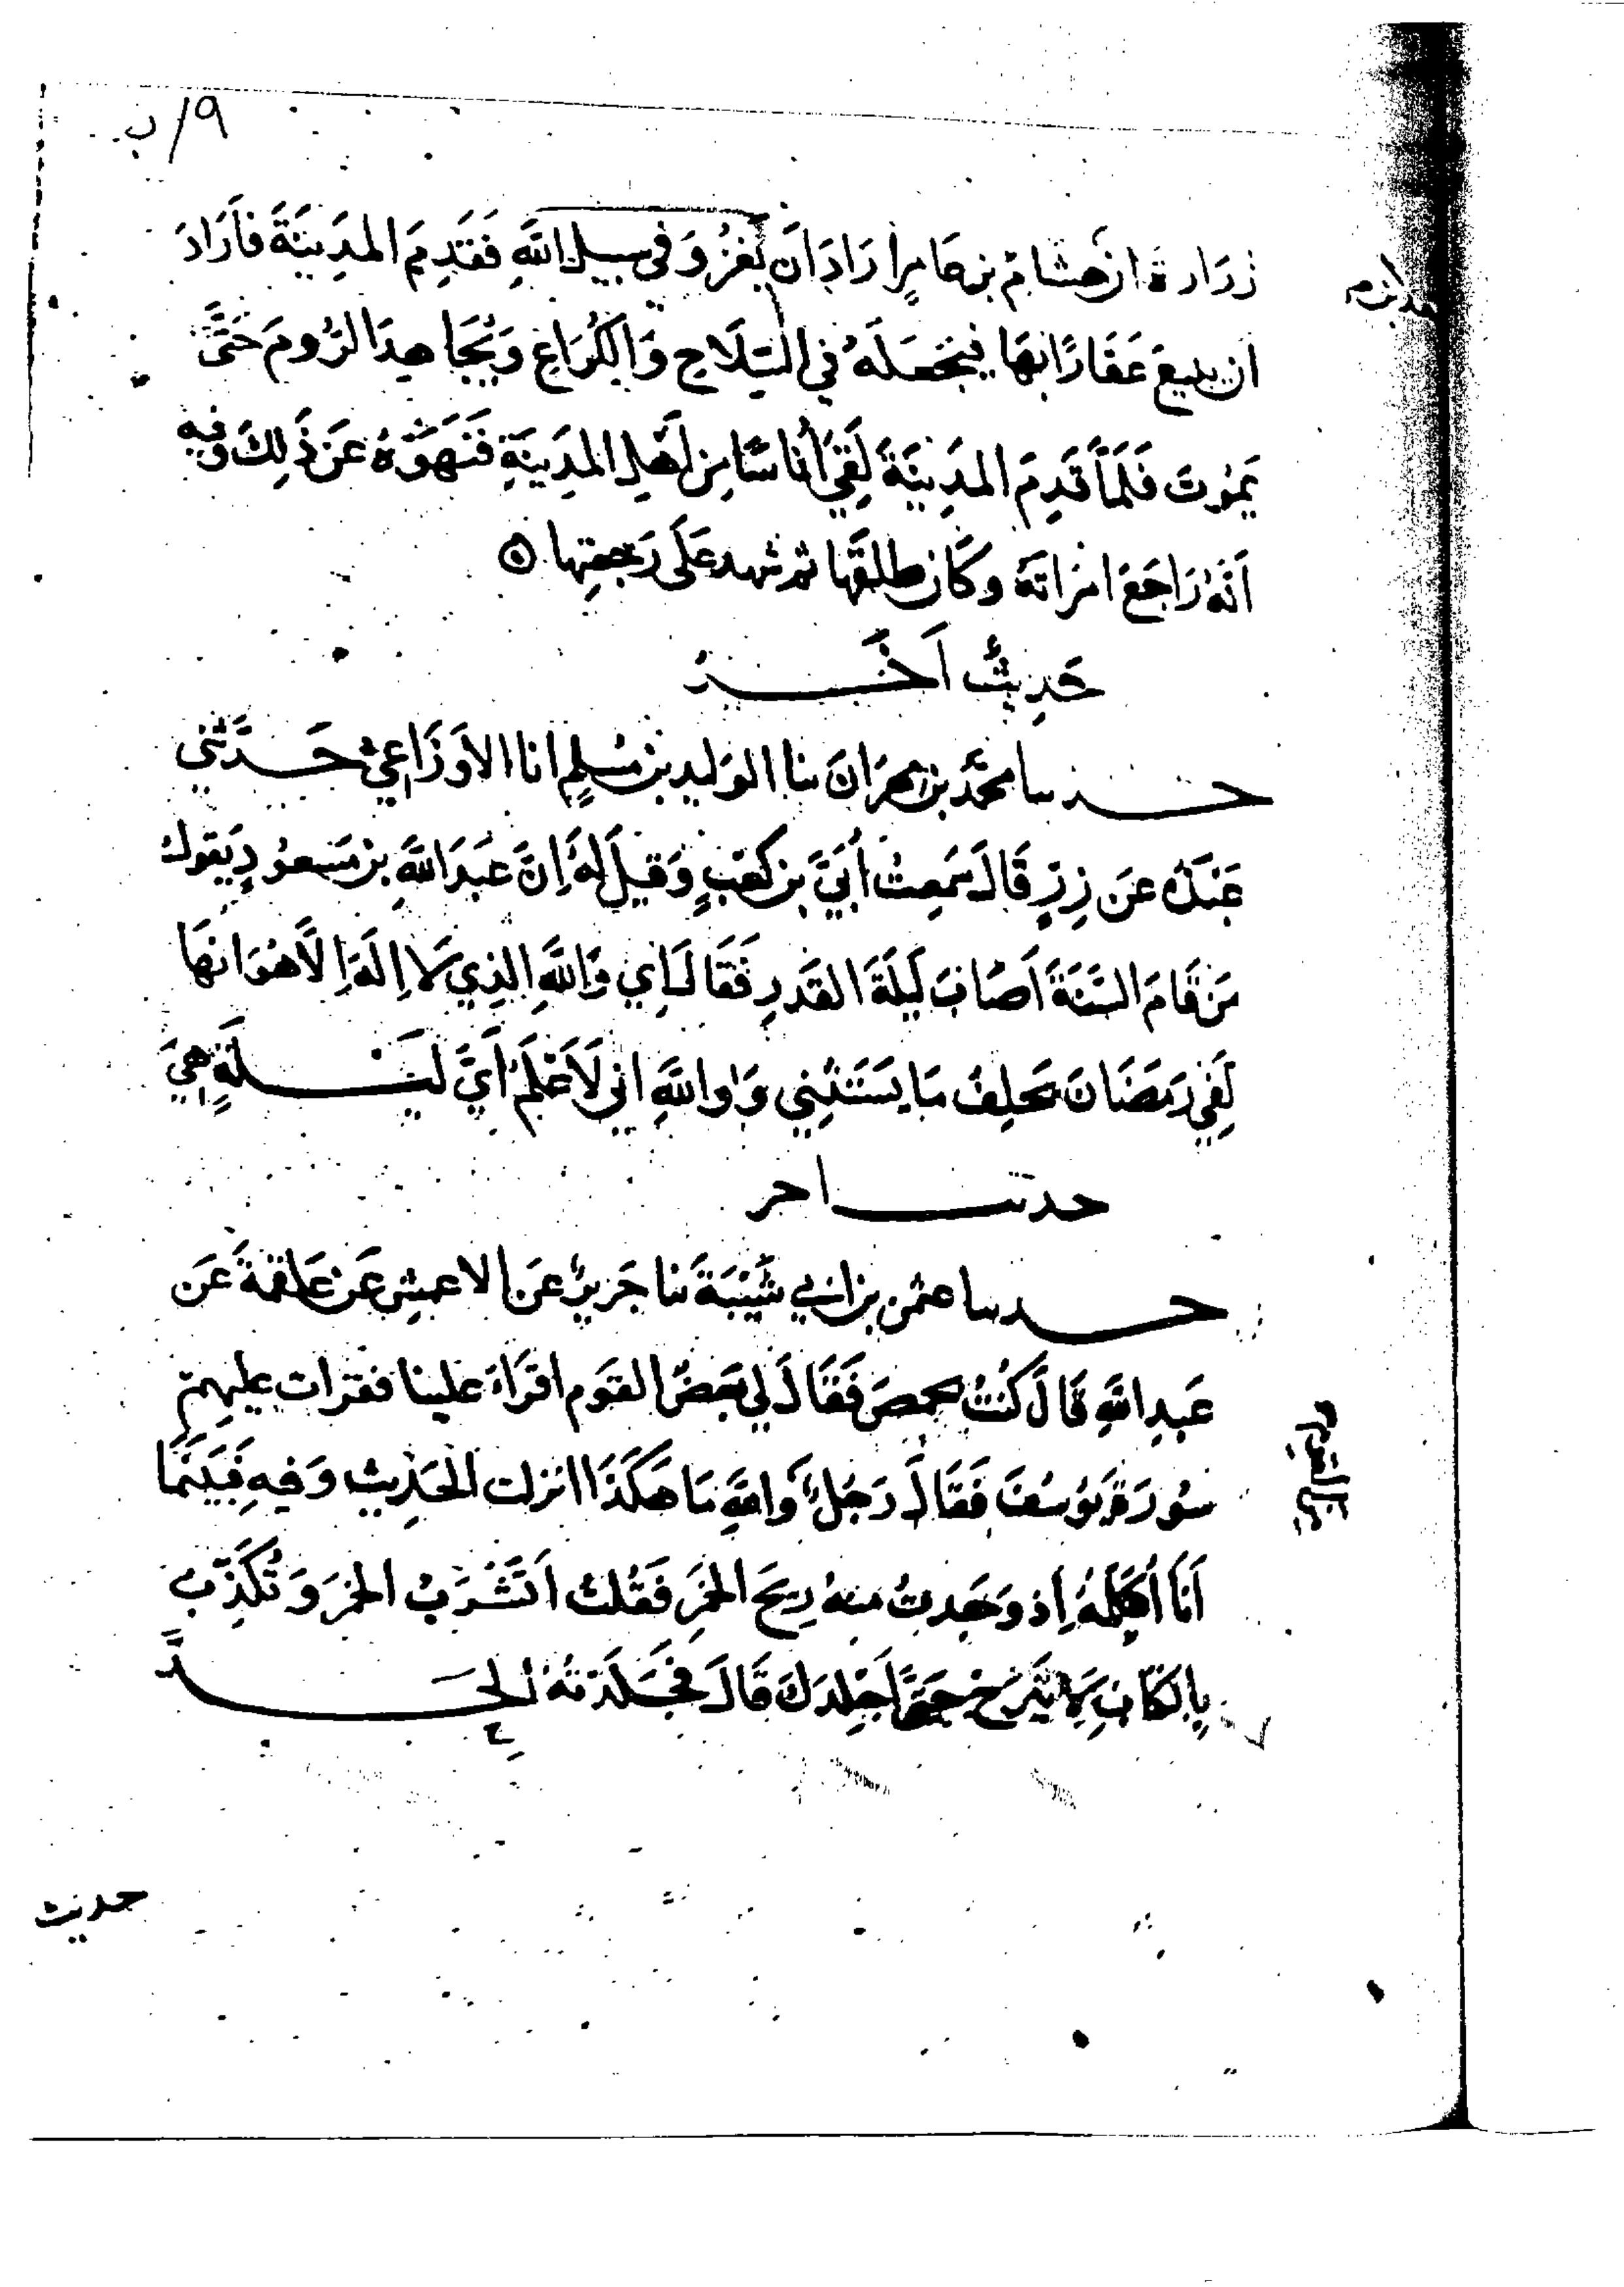 ٩/ب
زرارة ان هشام بن عامر اراد ان يغزو في سبيل الله فقدم المدينة فاراد
ان يبيع عقارًا بها فيجعله في السّلاح والكراع ويجاهد الروم حتّى
يموت فلمّا قدم المدينة لقي أناسًا من أهل المدينة فنهوه عن ذلك وفيه
انه راجع امراته وكان طلقها ثم شهد على رجعتها
حديث آخر
حدثنا محمّد بن مهران ثنا الوليد بن مسلم انا الأوزاعي حدّثني
عبدة عن زرٍ قال سمعت أبيّ بن كعبٍ وقيل له إنّ عبد الله بن مسعودٍ يقول
من قام السّنة أصاب ليلة القدر فقال أبي والله الذي لا إله إلّا هو انها
لفي رمضان يحلف ما يستثني ووالله اني لأعلم أيّ ليلةٍ هي
حديث اخر
حدثنا عثمن بن ابي شيبة ثنا جرير عن الاعمش عن علقمة عن
عبد الله قال كنت بحمص فقال لي بعض القوم اقراء علينا فقرات عليهم
سورة يوسف فقال رجل والله ما هكذا انزلت الحديث وفيه فبينما
أنا أكلمه إذ وجدت منه ريح الخمر فقلت اتشرب الخمر وتكذّب
بالكتاب لا تبرح حتّى اجلدك قال فجلدته الحدّ
حديث